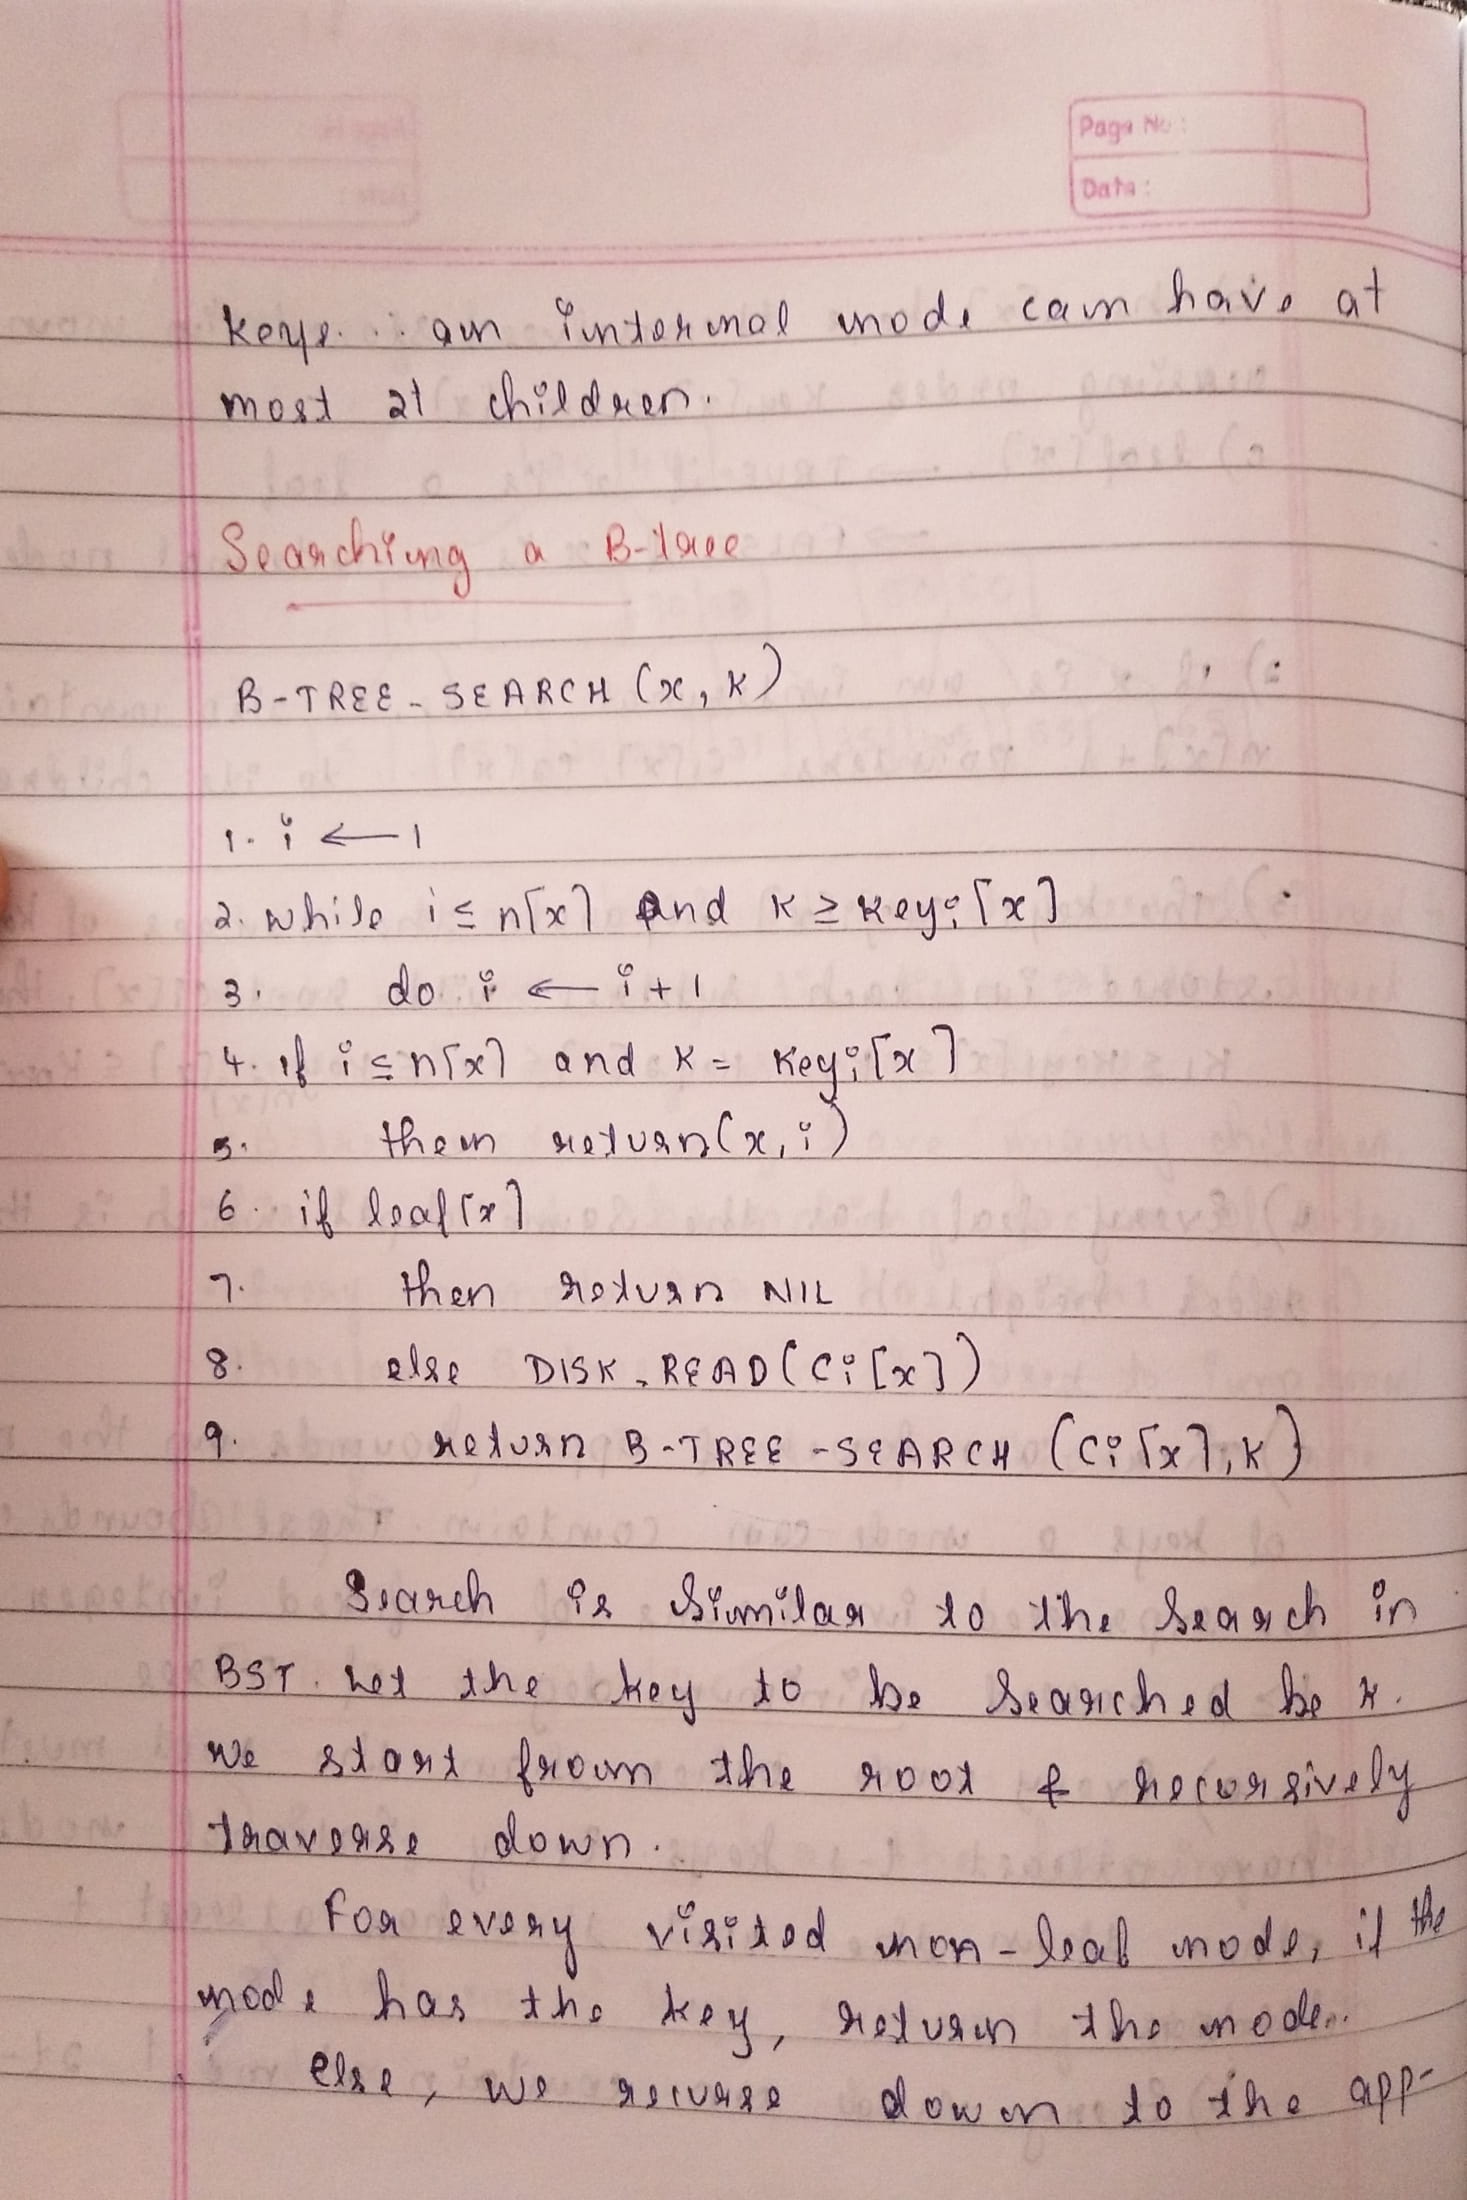 Page No:
Date:
keys. ∴ an internal node can have at
most 2t children.
Searching a B-tree
B-TREE-SEARCH (x, k)
1. i ← 1
2. while i ≤ n[x] And k ≥ keyi[x]
3. do i ← i + 1
4. if i ≤ n[x] and k = keyi[x]
5. then return (x, i)
6. if leaf[x]
7. then return NIL
8. else DISK-READ(Ci[x])
9. return B-TREE-SEARCH (Ci[x], k)
Search is similar to the search in
BST. Let the key to be searched be k.
we start from the root & recursively
traverse down.
For every visited non-leaf node, if the
node has the key, return the node.
else, we recurse down to the app-